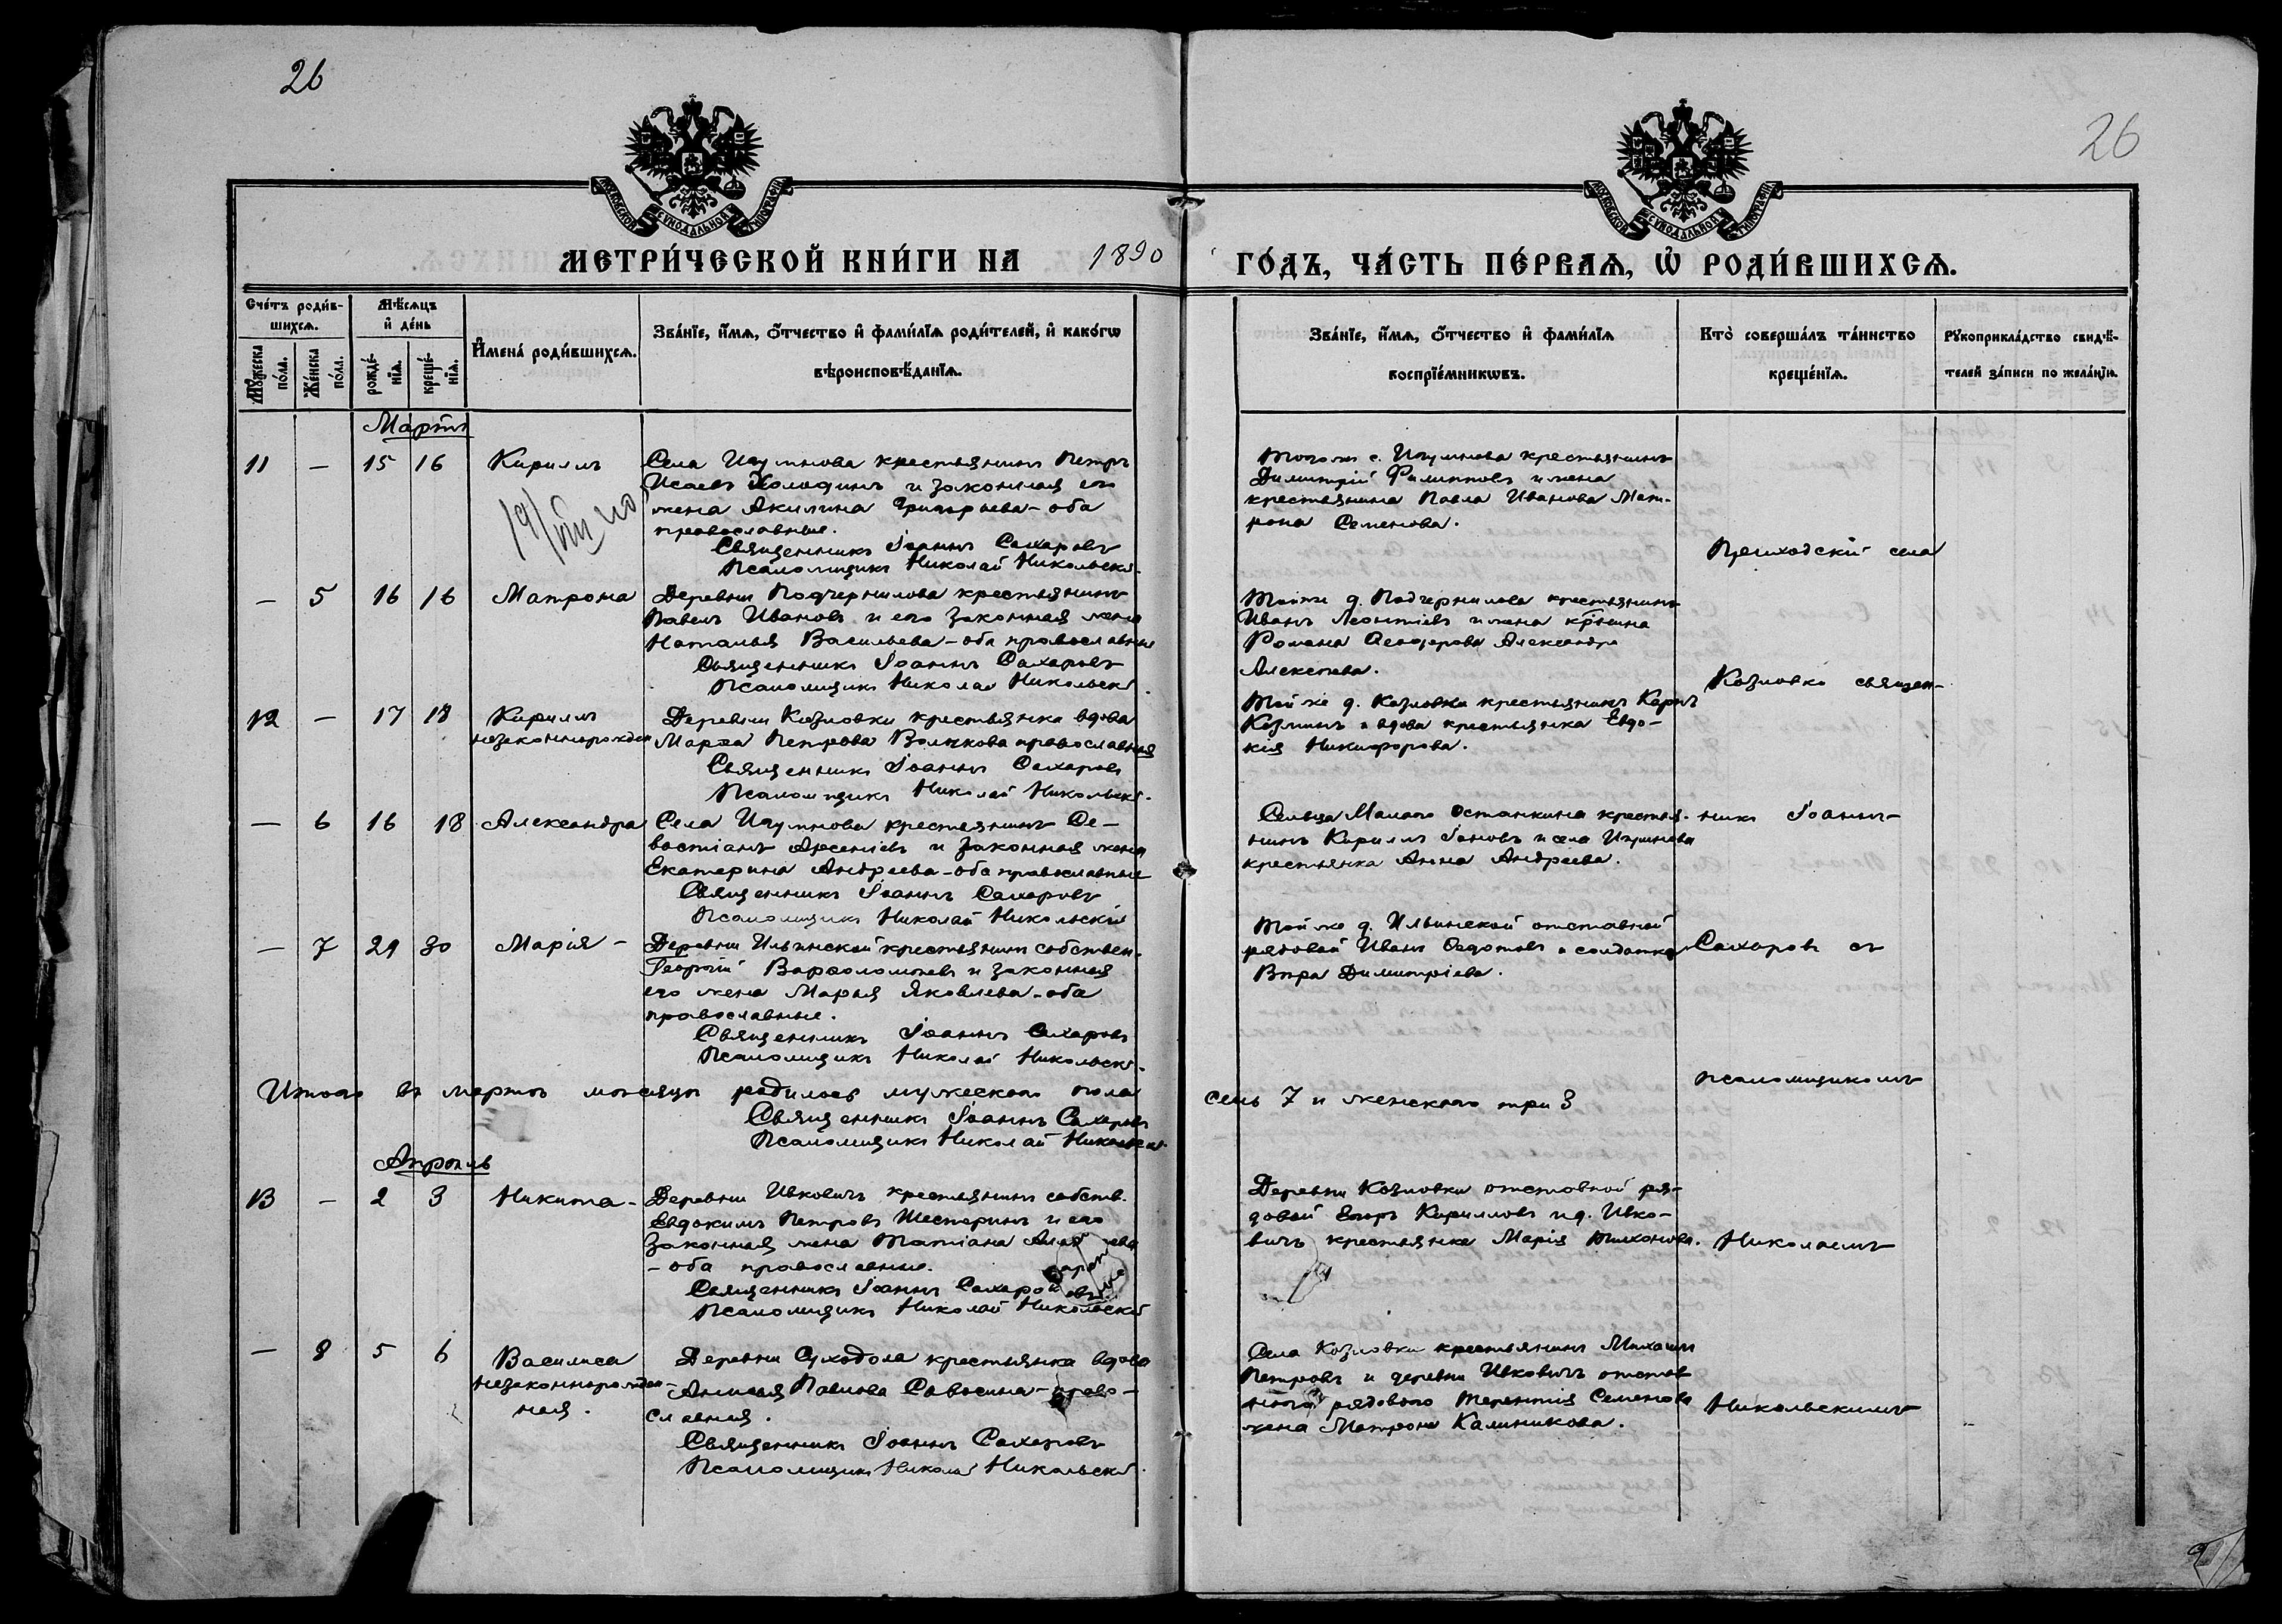 26
26
МОСКОВСКОЙ СѴНОДАЛЬНОЙ ТИПОГРАФІИ
МОСКОВСКОЙ СѴНОДАЛЬНОЙ ТИПОГРАФІИ
МЕТРИ́ЧЕСКОЙ КНИ́ГИ НА 1890 ГО́ДЪ, ЧА́СТЬ ПЕ́РВАѦ, Ѡ҆ РОДИ́ВШИХСѦ.
Сче́тъ роди́в-
шихсѧ.
Мꙋ́жеска по́ла.
Же́нска по́ла.
Мѣ́сѧцъ
и҆ де́нь
рожде́-
нїѧ.
креще́-
нїѧ.
И҆мена̀ роди́вшихсѧ.
Зва́нїе, и҆́мѧ, ѻ҆́тчество и҆ фами́лїѧ роди́телей, и҆ како́гѡ
вѣроисповѣ́данїѧ.
Зва́нїе, и҆́мѧ, ѻ҆́тчество и҆ фами́лїѧ
воспрїе́мникѡвъ.
Кто̀ соверша́лъ та́инство
креще́нїѧ.
Рꙋкоприкла́дство свидѣ́-
телей за́писи по жела́нїю.
Мартъ
11 — 15 16 Кириллъ
Села Игумнова крестьянинъ Петръ
Исаевъ Холодинъ и законная его
жена Акилина Григорьева - оба
православные.
Священникъ Іоаннъ Сахаровъ
Псаломщикъ Николай Никольскій.
Тогоже с. Игумнова крестьянинъ
Димитрій Филипповъ и жена
крестьянина Павла Иванова Мат-
рона Семенова.
Приходскій села
— 5 16 16 Матрона
Деревни Подчернилова крестьянинъ
Павелъ Ивановъ и его законная жена
Наталья Васильева - оба православные
Священникъ Іоаннъ Сахаровъ
Псаломщикъ Николай Никольскій.
Тойже д. Подчернилова крестьянинъ
Иванъ Леонтіевъ и жена кр-нина
Романа Ѳеодорова Александра
Алексѣева.
Козловки священ-
12 — 17 18 Кириллъ
незаконнорожден
Деревни Козловки крестьянка вдова
Марѳа Петрова Волкова православная
Священникъ Іоаннъ Сахаровъ
Псаломщикъ Николай Никольскій.
Той же д. Козловки крестьянинъ Карпъ
Козминъ и вдова крестьянка Евдо-
кія Никифорова.
— 6 16 18 Александра
Села Игумнова крестьянинъ Се-
вастіанъ Арсеніевъ и законная жена
Екатерина Андреева - оба православные
Священникъ Іоаннъ Сахаровъ
Псаломщикъ Николай Никольскій
Сельца Малаго Останкина крестья-
нинъ Кириллъ Іоновъ и села Игумнова
крестьянка Анна Андреева.
никъ Іоаннъ
— 7 29 30 Марія -
Деревни Ильинской крестьянинъ собствен.
Георгій Варѳоломѣевъ и законная
его жена Марья Яковлева - оба
православные.
Священникъ Іоаннъ Сахаровъ
Псаломщикъ Николай Никольскій.
Той же д. Ильинской отставной
рядовой Иванъ Ѳедотовъ и солдатка
Вѣра Димитріева.
Сахаровъ съ
Итого въ мартѣ мѣсяцѣ родилось мужескаго пола семь 7 и женскаго три 3
Священникъ Іоаннъ Сахаровъ
Псаломщикъ Николай Никольскій.
псаломщикомъ
Апрѣль
13 — 2 3 Никита -
Деревни Ивковичъ крестьянинъ собств.
Евдокимъ Петровъ Шестеринъ и его
законная жена Татіана
- оба православные.
Священникъ Іоаннъ Сахаровъ
Псаломщикъ Николай Никольскій
Деревни Козловки отставной ря-
довой Егоръ Кирилловъ и д. Ивко-
вичъ крестьянка Марія Тихонова.
Николаемъ
— 8 5 6 Василиса
незаконнорожден-
ная.
Деревни Суходола крестьянка вдова
Анисья Павлова Савосина - право-
славная.
Священникъ Іоаннъ Сахаровъ
Псаломщикъ Николай Никольскій.
Села Козловки крестьянинъ Михаилъ
Петровъ и деревни Ивковичъ отстав
ного рядового Терентія Семенова
жена Матрона Калинникова.
Никольскимъ